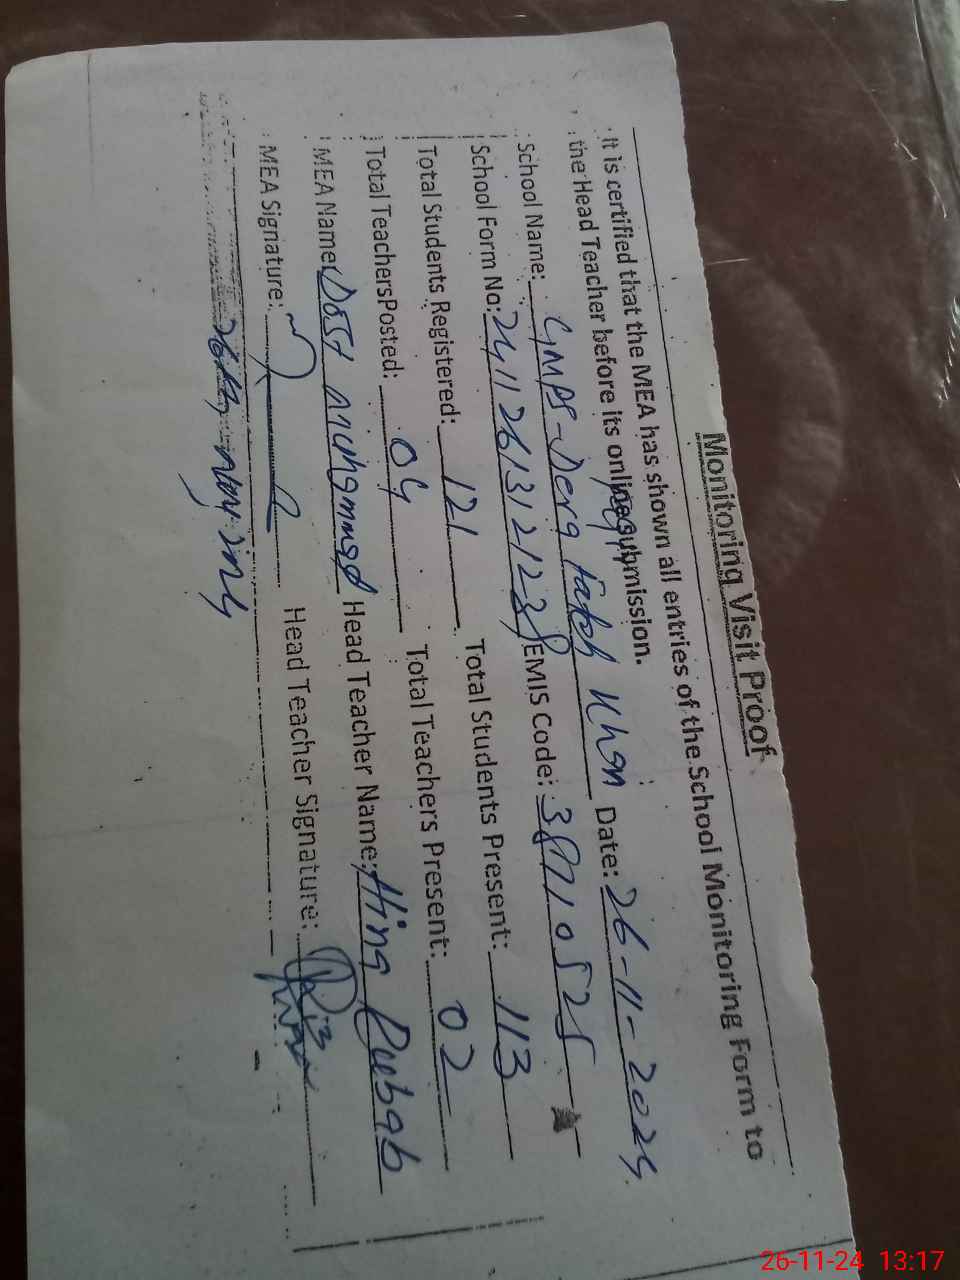 Monitoring Visit Proof
It is certified that the MEA has shown all entries of the School Monitoring Form to
the Head Teacher before its online submission.
School Name: GMPS-Dera Fateh Khan Date: 26-11-2024
School Form No: EMIS Code:
Total Students Registered: 121 Total Students Present: 113
Total Teachers Posted: 04 Total Teachers Present: 02
MEA Name: Dost Muhammad Head Teacher Name: Hina Rubab
MEA Signature: Head Teacher Signature:
26-11-24 13:17